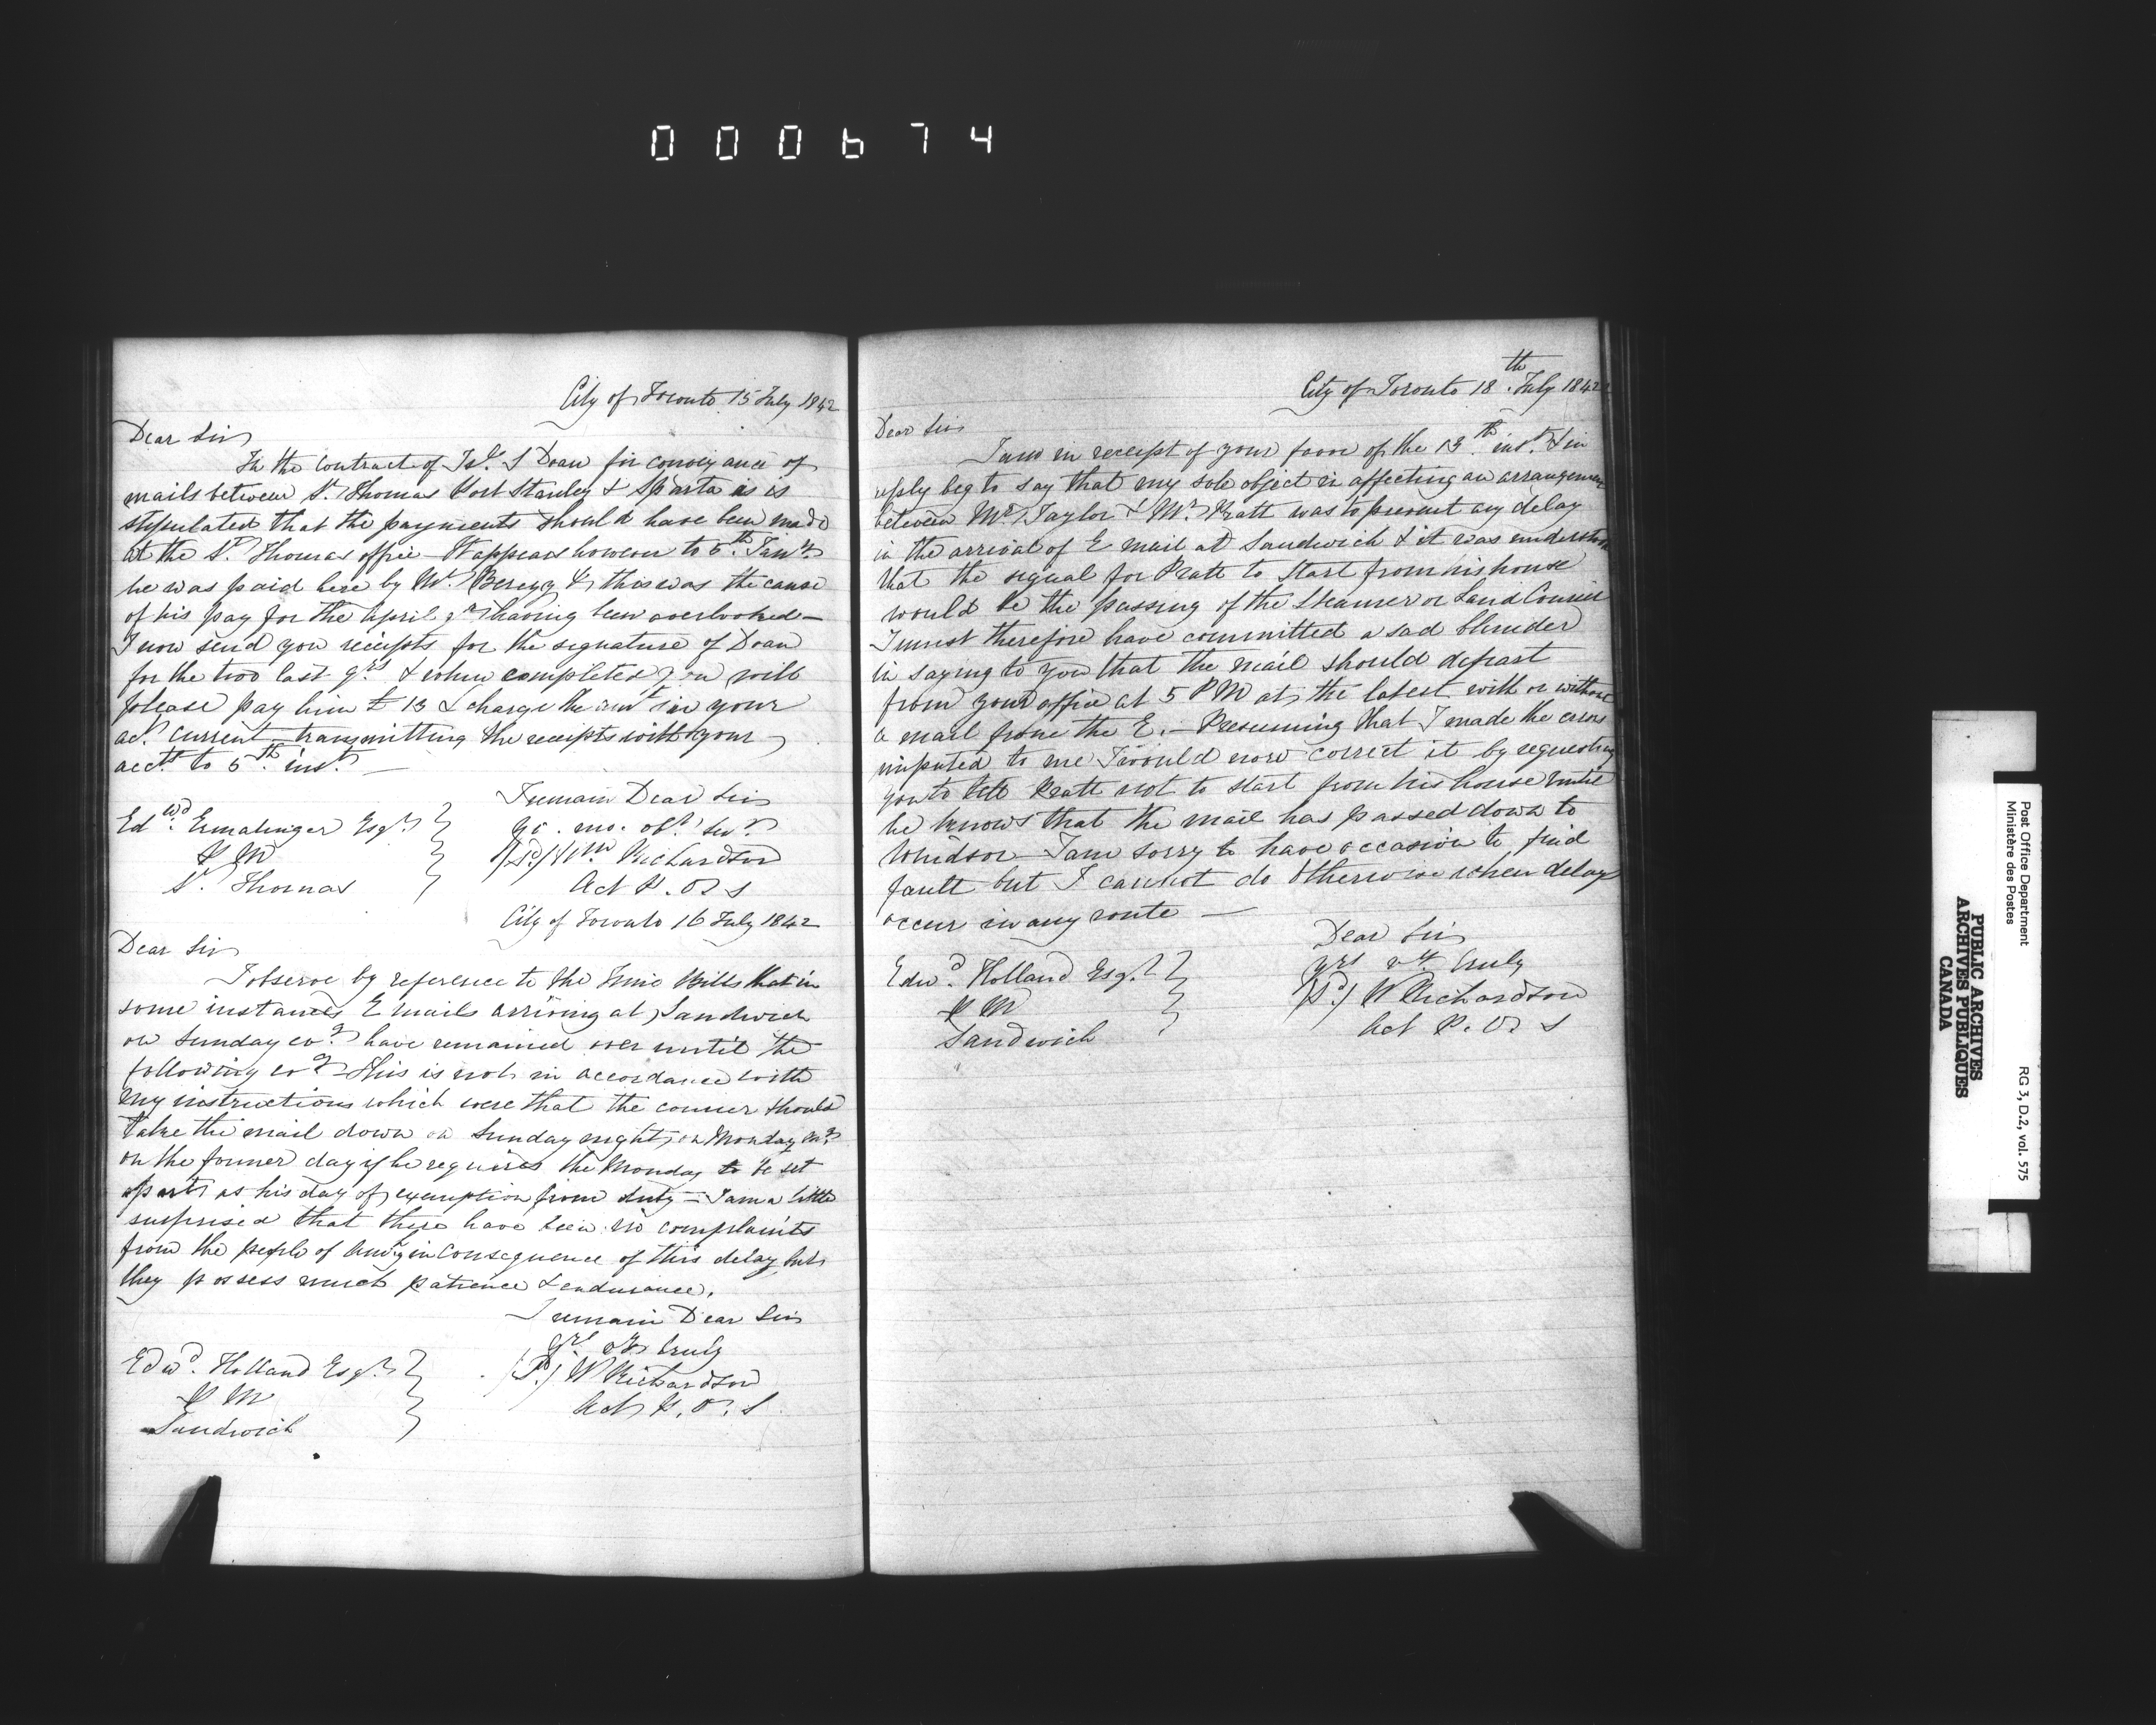 000674
City of Toronto 15 July 1842
Dear Sir
In the Contract of Isl. S Doan for conveyance of
mails between St. Thomas Port Stanley & Sparta is is
stipulated that the payments should have been made
at the St. Thomas office – It appears however to 5th. Jany.
he was paid here by Mr. Berczy & this was the cause
of his pay for the April qr. having been overlooked –
I now send you receipts for the signature of Doan
for the two last qrs. & when completed you will
please pay him £ 13 & charge the amt in your
act. current transmitting the receipts with your
acct. to 5th. inst. –
I remain Dear Sir
Edwd. Ermatinger Esqr.
Yr. mo. obt. Sert.
P M
(Sd.) Wm. Richardson
St. Thomas
Act P. O. S
City of Toronto 16 July 1842
Dear Sir
I observe by reference to the Time Bills that in
some instances E mails arriving at Sandwich
on Sunday evg. have remained over until the
following evg. – This is not in accordance with
my instructions which were that the courier should
take the mail down on Sunday night, or Monday mg.
on the former day if he requires the Monday to be set
apart as his day of exemption from duty – I am a little
surprised that there have been no complaints
from the people of in consequence of this delay, but
they possess much patience & endurance.
I remain Dear Sir
yrs. vy truly
Edwd. Holland Esqr.
(Sd.) W Richardson
P M
Act P. O. S
Sandwich
City of Toronto 18th. July 1842
Dear Sir
I am in receipt of your favor of the 13th. inst. & in
reply beg to say that my sole object in affecting an arrangement
between Mr. Taylor & Mr. Pratt was to prevent any delay
in the arrival of E mail at Sandwich & it was understood
that the signal for Pratt to start from his house
would be the passing of the Steamer or Land Courier
I must therefore have committed a sad blunder
in saying to you that the mail should depart
from your office at 5 PM at the latest with or without
a mail from the E. – Presuming that I made the error
imputed to me I would now correct it by requesting
you to tell Pratt not to start from his house until
he knows that the mail has passed down to
Windsor – I am sorry to have occasion to find
fault but I cannot do otherwise when delays
occur in any route –
Dear Sir
Edwd. Holland Esqr.
yrs vy. truly
P M
(Sd.) W Richardson
Sandwich
Act P. O. S
Post Office Department
Ministère des Postes
RG 3, D.2, vol. 575
PUBLIC ARCHIVES
ARCHIVES PUBLIQUES
CANADA